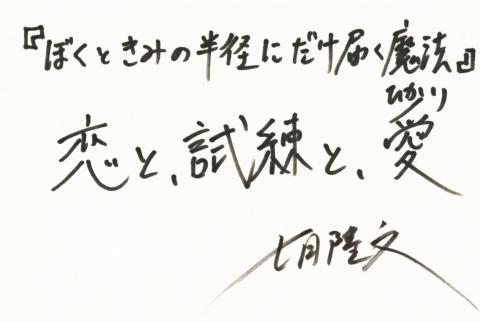 『ぼくときみの半径にだけ届く魔法』
ひかり
恋と、試練と、愛
七月隆文